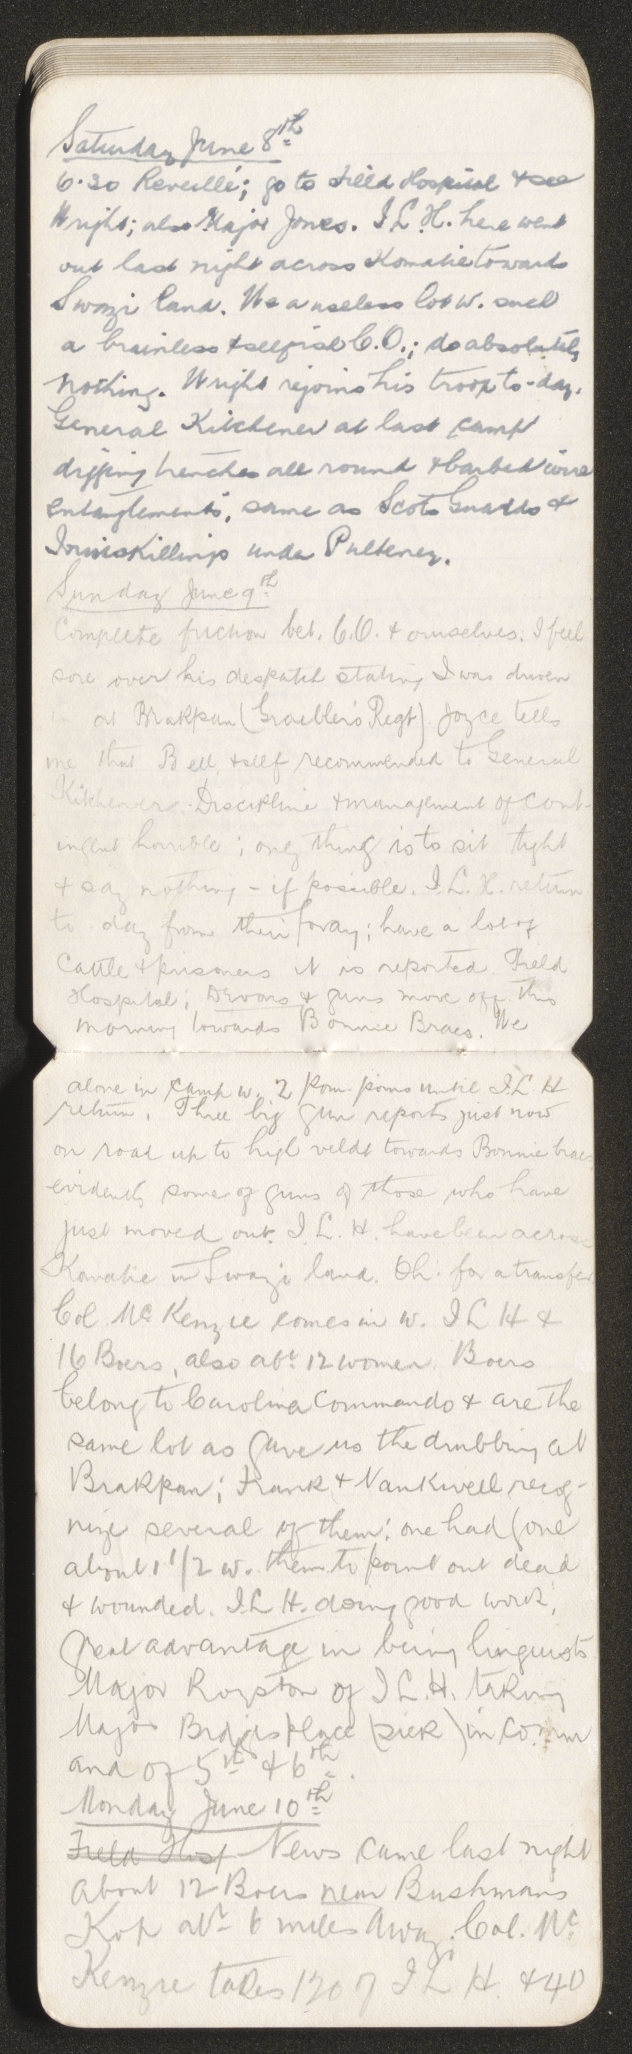 Saturday June 8th
6.30 Reveillé; go to Field Hospital & see
Wright; also Major Jones. I.L.H. here went
out last night across Komatie towards
Swazi land. We a useless lot w. such
a brainless & selfish C.O.; do absolutely
nothing. Wright rejoins his troop to-day.
General Kitchener at last camp
digging trenches all round & barbed wire
entanglements, same as Scots Guards &
Inniskillings under Pulteney.
Sunday June 9th
Complete friction bet. C.O. & ourselves. I feel
sore over his despatch stating I was driven
in at Brakpan (Grobler's Regt). Joyce tells
me that Bell & self recommended to General
Kitchener. Discipline & management of cont-
ingent horrible; only thing is to sit tight
& say nothing - if possible. I.L.H. return
to day from their foray; have a lot of
cattle & prisoners it is reported. Field
Hospital; Devons & guns move off this
morning towards Bonnie Braes. We
alone in camp w. 2 pom-poms until I.L.H
return. Three big gun reports just now
on road up to high veldt towards Bonnie braes,
evidently some of guns of those who have
just moved out. I.L.H. have been across
Komatie in Swazi land. Oh. for a transfer
Col. McKenzie comes in w. I L H &
16 Boers, also abt 12 women. Boers
belong to Carolina Commando & are the
same lot as gave us the drubbing at
Brakpan; Frank & Vankwell recog-
nize several of them; one had gone
about 1 1/2 w. them to point out dead
& wounded. I.L H. doing good work,
great advantage in being linguists
Major Royston of I.L.H. taking
Major Bridges place (sick) in comm
and of 5th & 6th.
Monday June 10th
Field Hosp News came last night
about 12 Boers near Bushmans
Kop abt 6 miles away. Col. Mc
Kenzie takes 120 of I L H. & 40